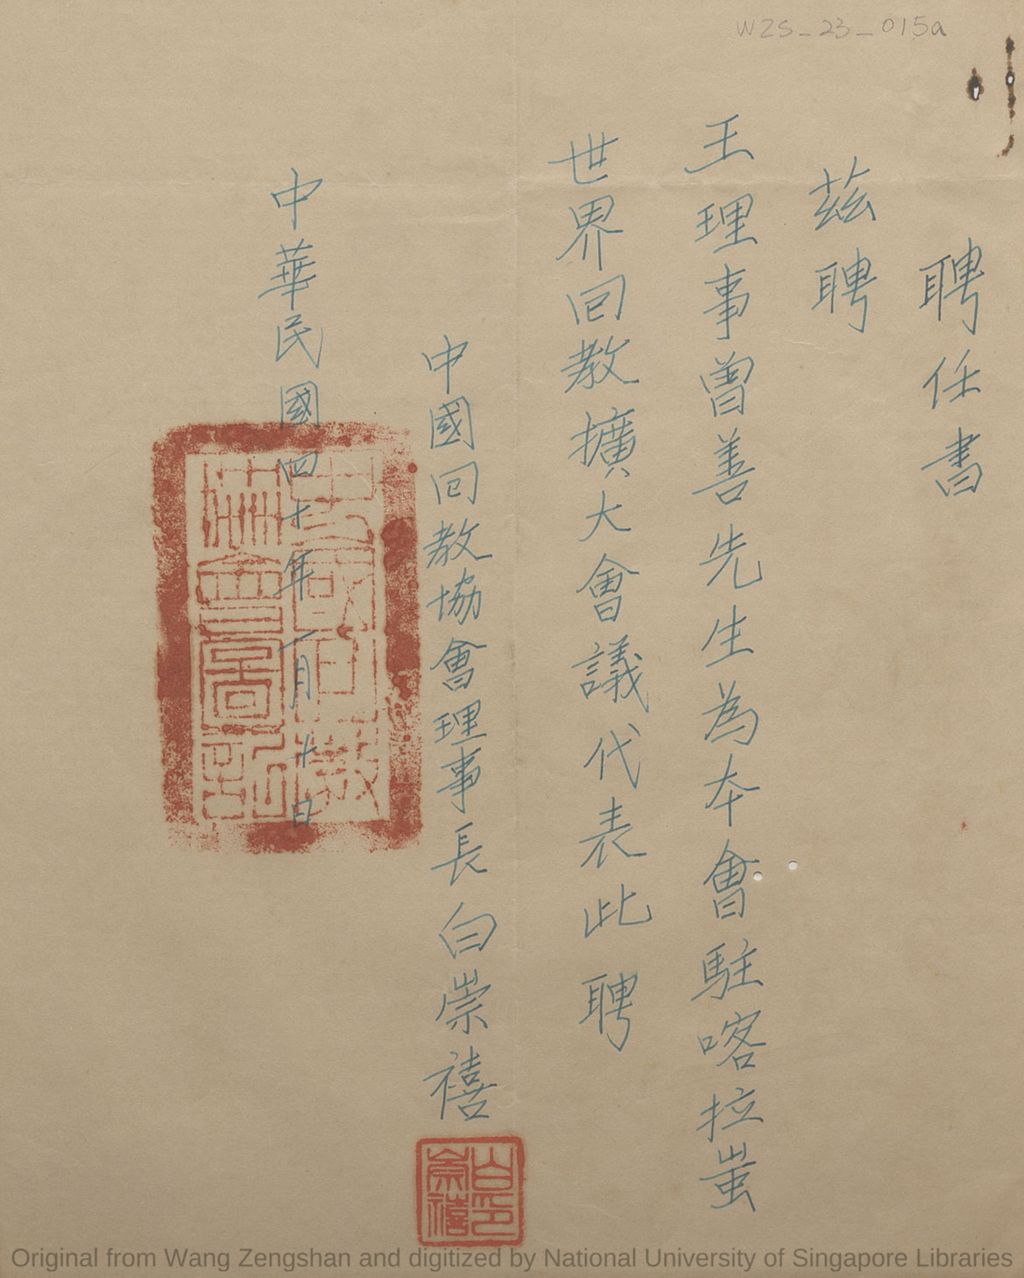 WZS_23_015a
聘任書
茲聘
王理事曾善先生為本會駐喀拉蚩
世界回教擴大會議代表此聘
中國回教協會理事長白崇禧
白崇禧印
中華民國四十年一月十日
Original from Wang Zengshan and digitized by National University of Singapore Libraries